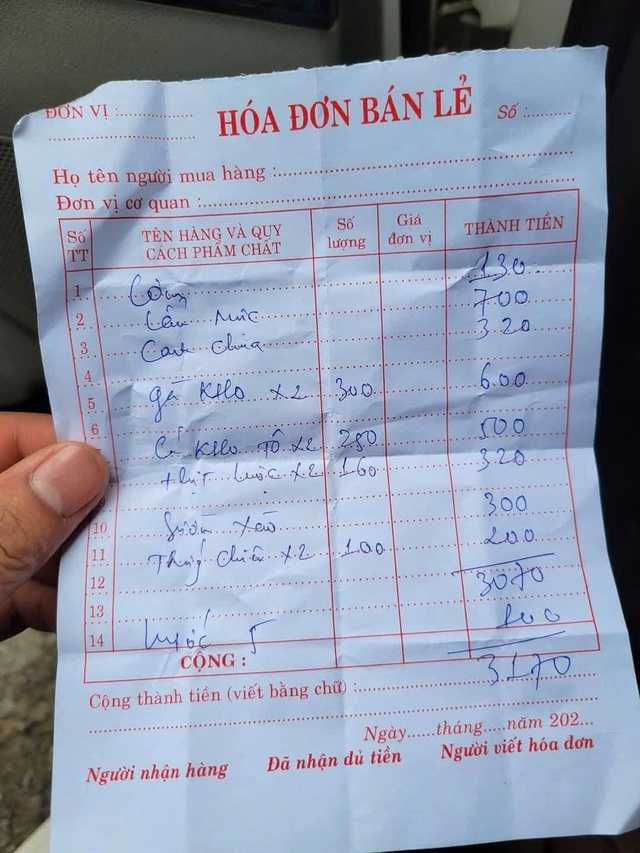 ĐƠN VỊ :...............
HÓA ĐƠN BÁN LẺ
Số :..........
Họ tên người mua hàng :
Đơn vị cơ quan :
Số TT TÊN HÀNG VÀ QUY CÁCH PHẨM CHẤT Số lượng Giá đơn vị THÀNH TIỀN
1 Cơm 130
2 Lẩu 700
3 Canh chua 320
4
5 gà KHO x2 300 600
6
Cá KHO TỘ x2 250 500
thịt luộc x2 160 320
10 Sườn xào 300
11 Trứng chiên x2 100 200
12 3070
13
14 Nước 5 100
CỘNG : 3170
Cộng thành tiền (viết bằng chữ) :
Ngày.......tháng.....năm 202...
Người nhận hàng Đã nhận đủ tiền Người viết hóa đơn